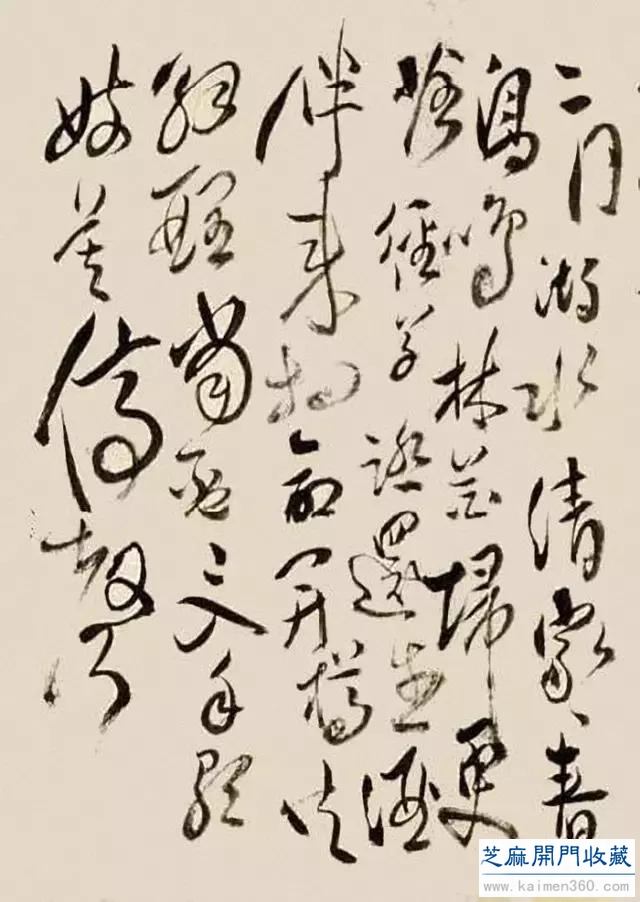 二月湖水清家々春
鳥鳴林花掃更
落徑草踏還生酒
伴來相命開樽共
解酲當盃已入手歌
妓莫停聲
芝麻開門收藏
www.kaimen360.com